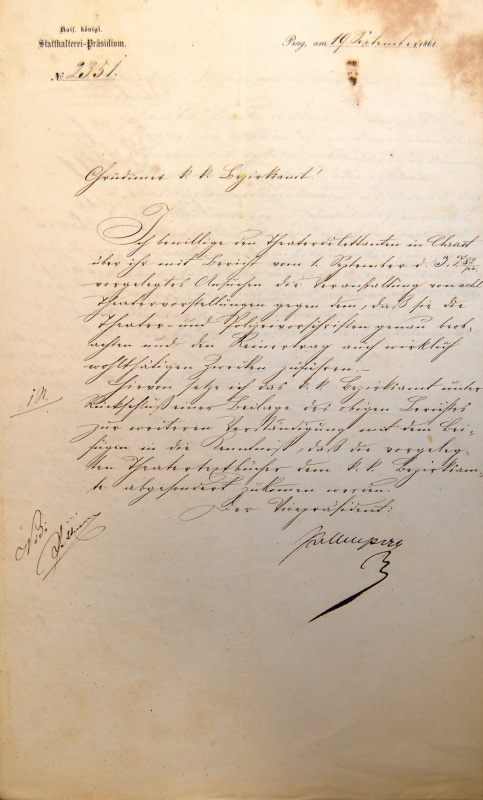 Kais. königl.
Statthalterei-Präsidium.
Prag, am 19. September 1861.
No. 2351.
Chrudimer k. k. Bezirksamt!
Ich bewillige den Theaterdilettanten in Chrast
über ihr mit Bericht vom 1. September d. J. Z. 82/pr.
vorgelegtes Ansuchen die Veranstaltung von acht
Theatervorstellungen gegen dem, daß sie die
Theater- und Polizeivorschriften genau beob-
achten und den Reinertrag auch wirklich
wohlthätigen Zwecken zuführen.-
Hievon setze ich das k. k. Bezirksamt unter
Rückschluß einer Beilage des obigen Berichtes
zur weiteren Verständigung mit dem Bei-
fügen in die Kenntniß, daß die vorgeleg-
ten Theatertextbücher dem k. k. Bezirksam-
te abgesondert zukommen werden.
Der Vicepräsident:
Vidi